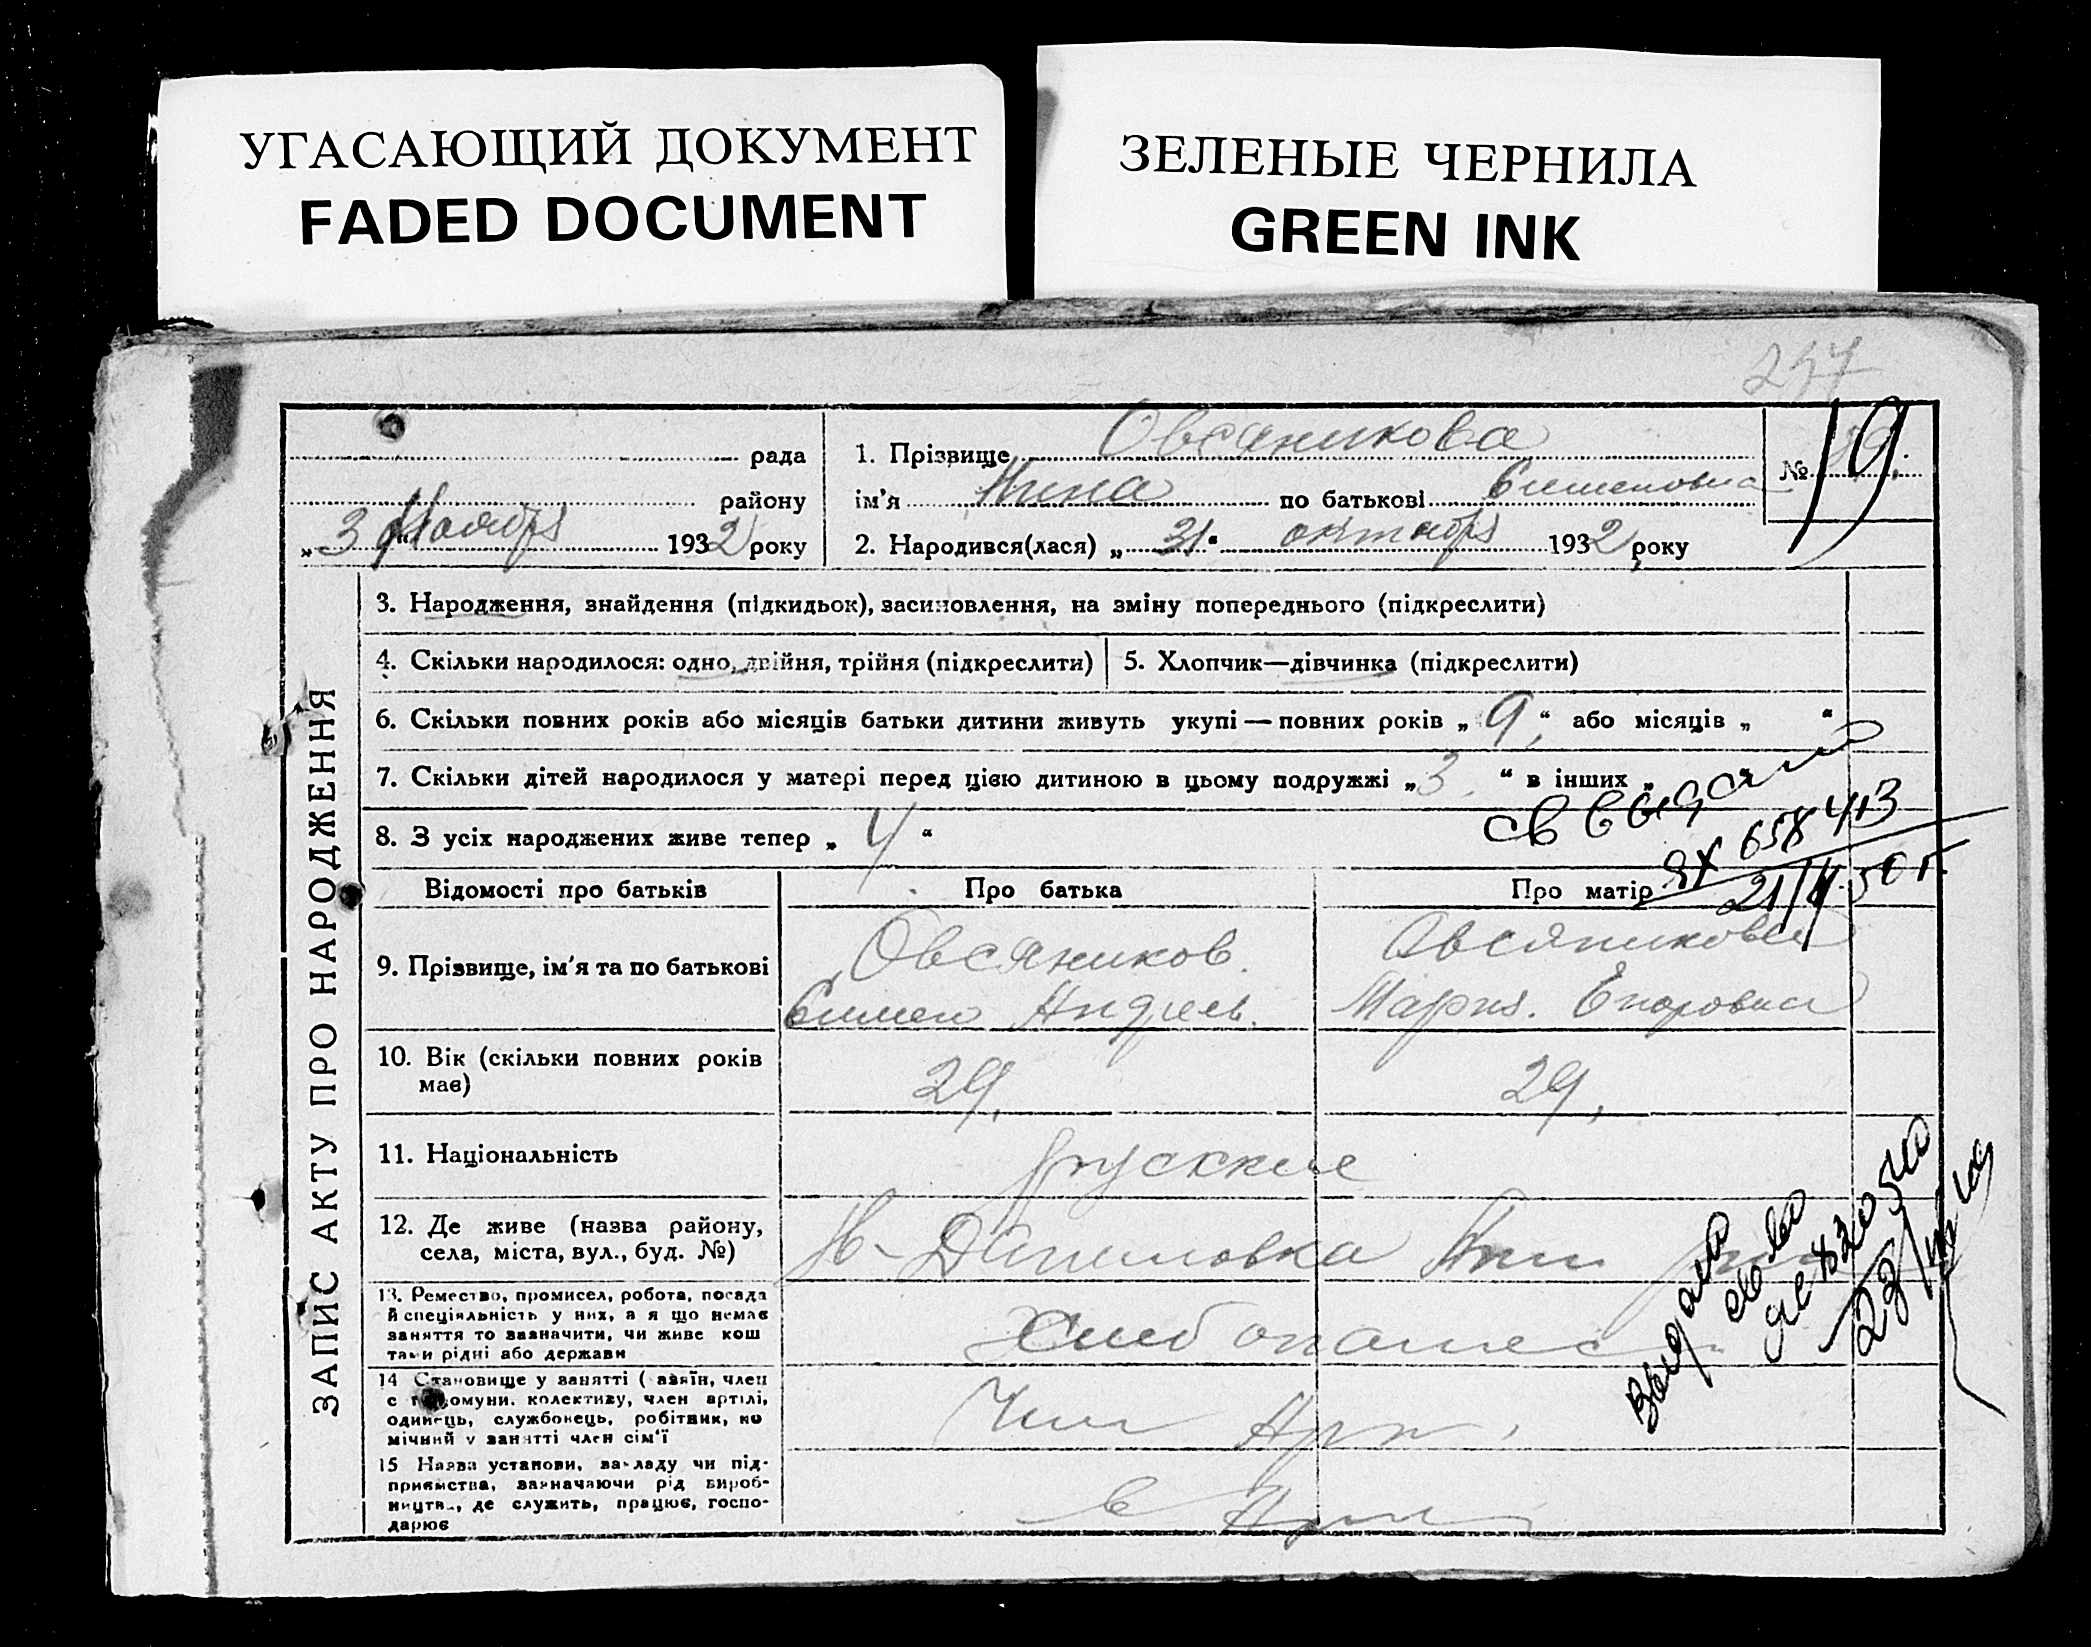 УГАСАЮЩИЙ ДОКУМЕНТ
FADED DOCUMENT
ЗЕЛЕНЫЕ ЧЕРНИЛА
GREEN INK
рада
району
„ 3 “ Ноября 1932 року
1. Прізвище Овсяникова
ім'я Нина по батькові Сименовна
2. Народився(лася) „ 31 “ октября 1932 року
№ 19
ЗАПИС АКТУ ПРО НАРОДЖЕННЯ
3. Народження, знайдення (підкидьок), засиновлення, на зміну попереднього (підкреслити)
4. Скільки народилося: одно, двійня, трійня (підкреслити)
5. Хлопчик—дівчинка (підкреслити)
6. Скільки повних років або місяців батьки дитини живуть укупі — повних років „ 9 “ або місяців „ “
7. Скільки дітей народилося у матері перед цією дитиною в цьому подружжі „ 3 “ в інших „ “
8. З усіх народжених живе тепер „ 4 “
св выдано
ЯХ 658413
Відомості про батьків
Про батька
Про матір
9. Прізвище, ім'я та по батькові
Овсяников
Симен Андреев.
Овсяникова
Мария. Егоровна
10. Вік (скільки повних років має)
29.
29.
11. Національність
русские
12. Де живе (назва району,
села, міста, вул., буд. №)
Н-Даниловка
13. Ремество, промисел, робота, посада
й спеціяльність у них, а я що немає
заняття то зазначити, чи живе кош
тами рідні або держави
Хлебопашес
14 Становище у занятті ( азяїн, член
с г комуни. колективу, член артілі,
одинець, службовець, робітник, по
мічний у занятті член сім'ї
Член Арт.
15 Назва установи, закладу чи під-
приємства, зазначаючи рід вироб-
ництв., де служить, працює, госпо-
дарює
в Арт
выдано